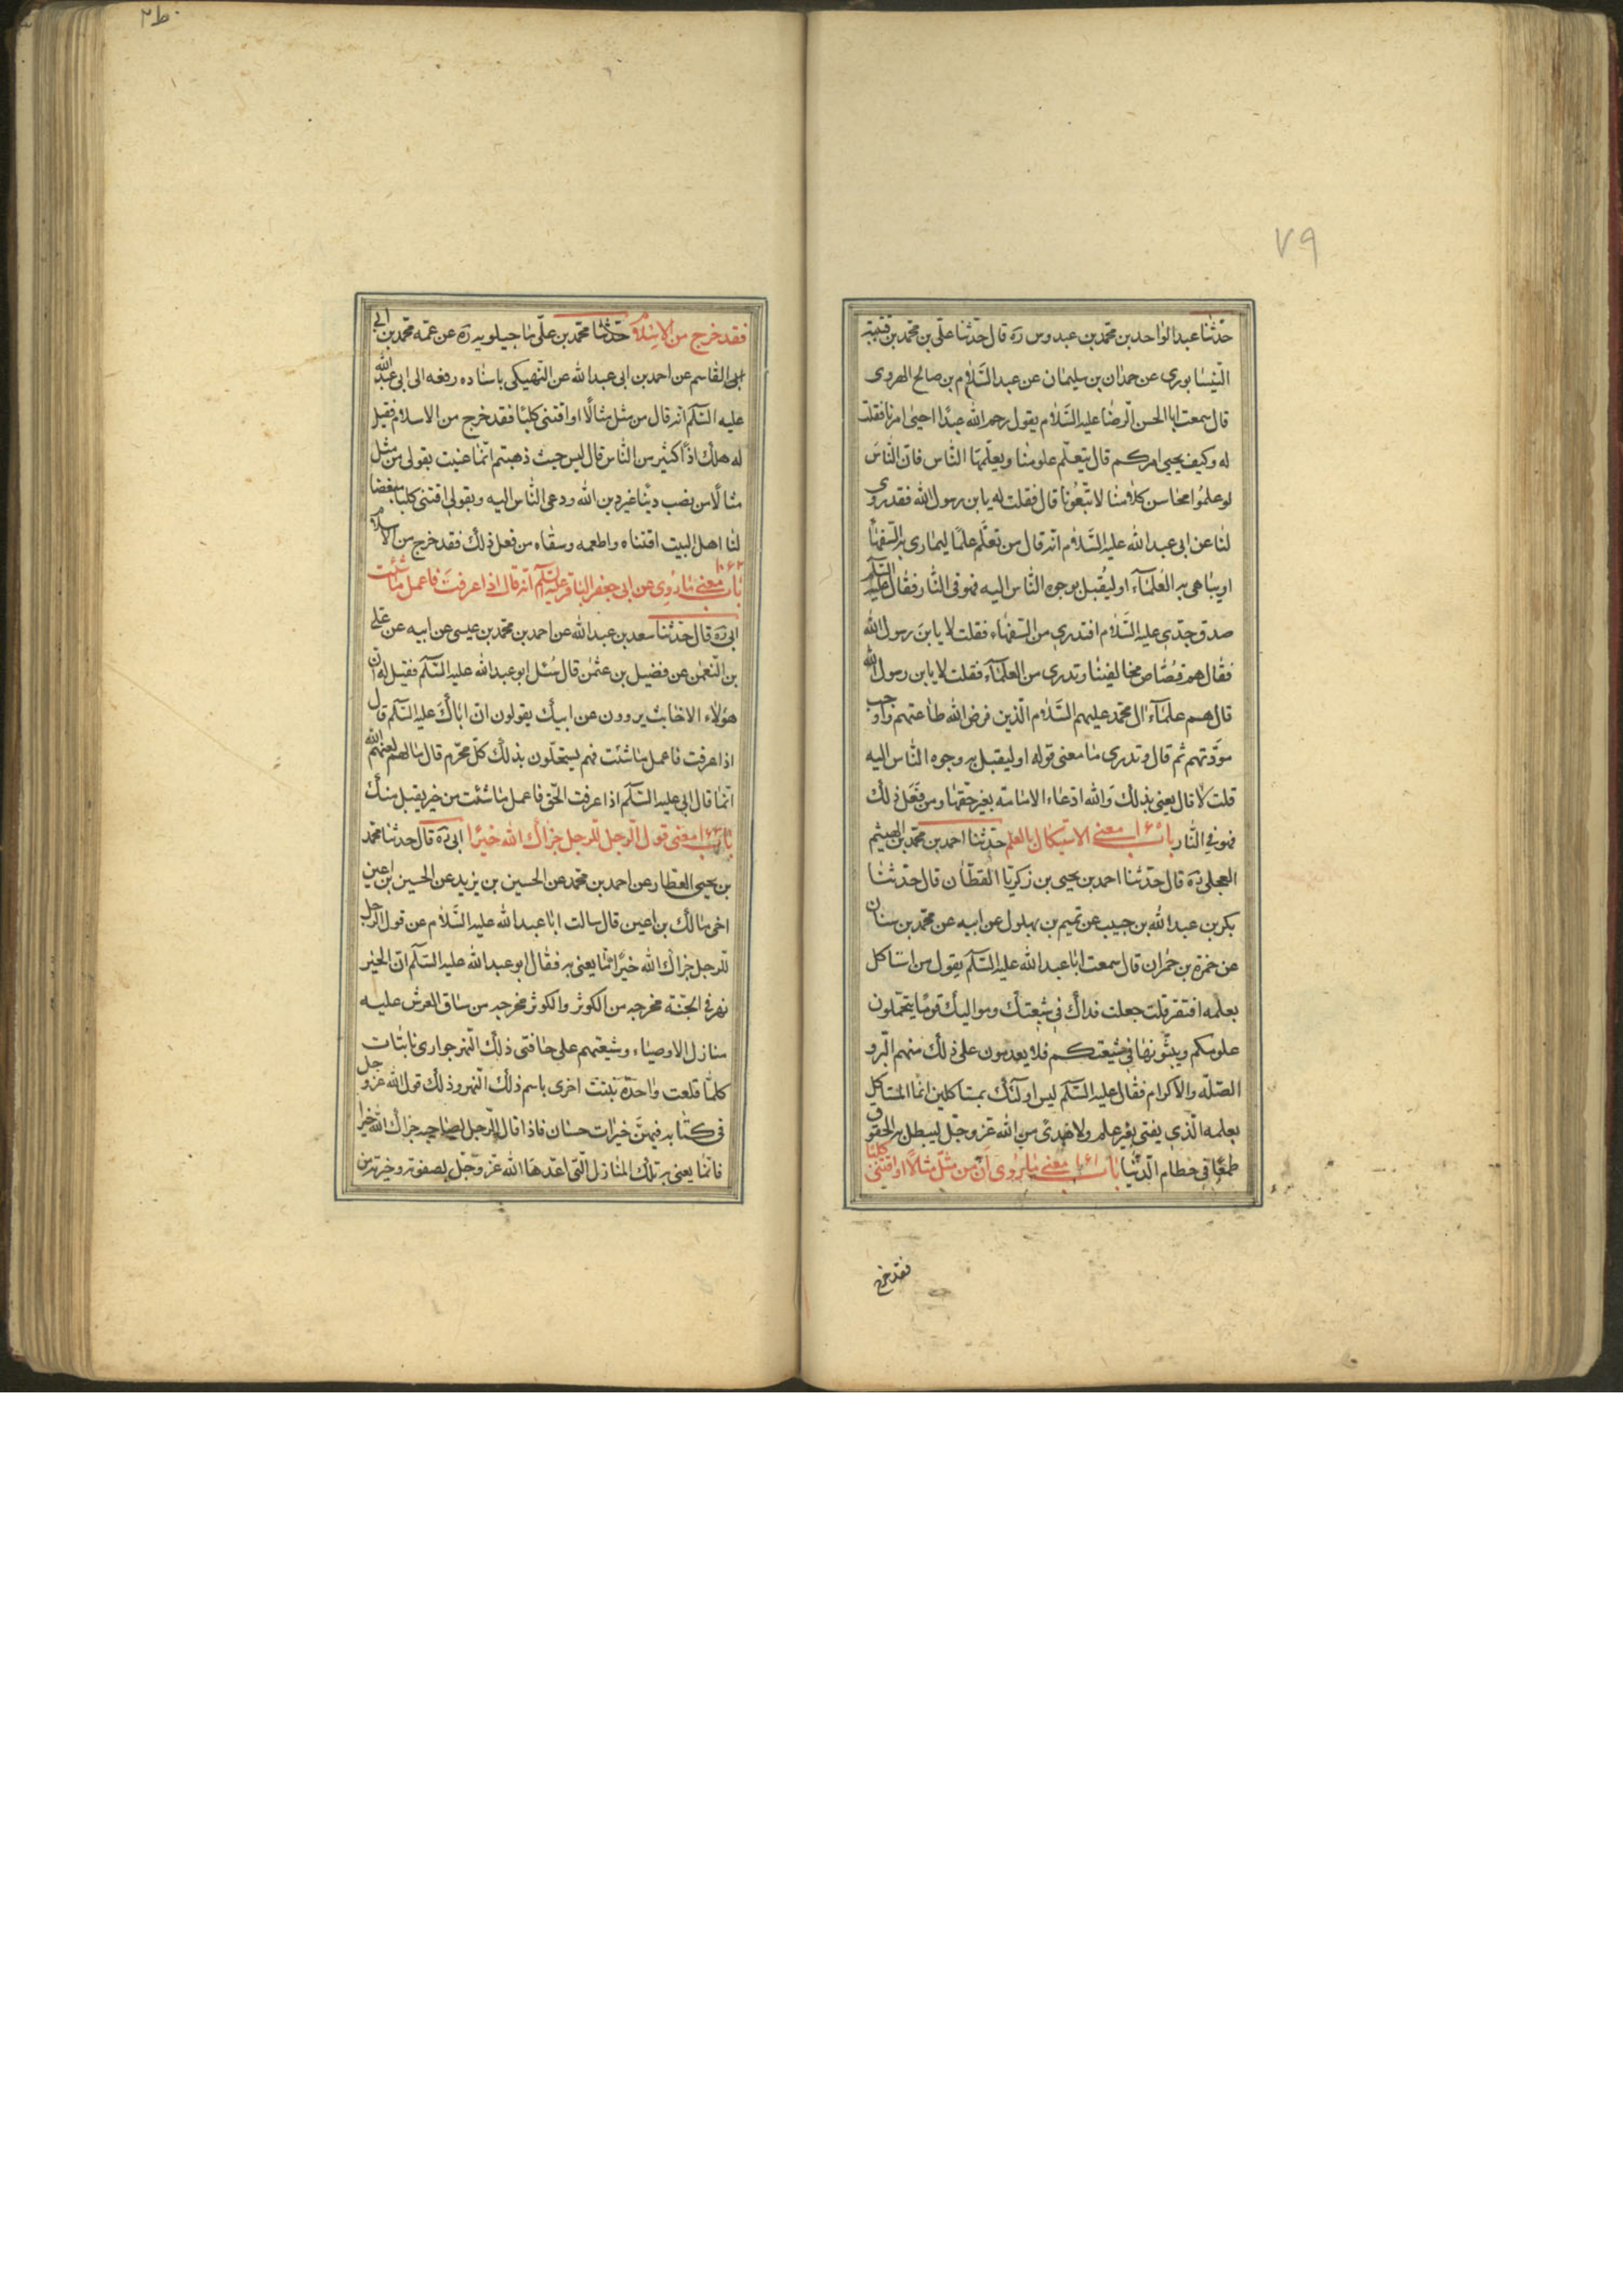 ٧٩
حدثنا عبد الواحد بن محمد بن عبدوس ره قال حدثنا على بن محمد بن قتيبة
النيسابورى عن حمدان بن سليمان عن عبد السلام بن صالح الهروى
قال سمعت ابا الحسن الرضا عليه السلام يقول رحم الله عبدًا احيى امرنا فقلت
له وكيف يحيى امركم قال يتعلّم علومنا ويعلّمها الناس فان الناس
لو علموا محاسن كلامنا لاتّبعونا قال فقلت له يا ابن رسول الله فقد روى
لنا عن ابى عبد الله عليه السلام انه قال من تعلّم علمًا ليمارى به السفهاء
او يباهى به العلماء او ليُقبل بوجوه الناس اليه فهو فى النار فقال عليه السلم
صدق جدى عليه السلام افتدرى من السفهاء فقلت لا يا ابن رسول الله
فقال هم قصّاص مخالفينا وتدرى من العلماء فقلت لا يا بن رسول الله
قال هم علماء ال محمد عليهم السلام الذين فرض الله طاعتهم واوجب
مودّتهم ثم قال وتدرى ما معنى قوله او ليقبل به وجوه الناس اليه
قلت لا قال يعنى بذلك والله ادعاء الامامة بغير حقها ومن فعل ذلك
فهو فى النار باب معنى الاستيكال بالعلم حدثنا احمد بن محمد بن الهيثم
العجلى ره قال حدثنا احمد بن يحيى بن زكريا القطّان قال حدثنا
بكر بن عبد الله بن حبيب عن تميم بن بهلول عن ابيه عن محمد بن سنان
عن حمزة بن حمران قال سمعت ابا عبد الله عليه السلم يقول من استاكل
بعلمه افتقر قلت جعلت فداك فى شيعتك ومواليك قومًا يتحمّلون
علومكم ويبثّونها فى شيعتكم فلا يعدمون على ذلك منهم البر و
الصلة والاكرام فقال عليه السلم ليس اولئك بمستاكلين انما المستاكل
بعلمه الذى يفتى بغير علم ولا هدى من الله عز وجل ليبطل به الحقوق
طمعًا فى حطام الدنيا باب ١٦١ معنى ما روى ان من مثّل مثالًا او اقتنى كلبًا
فقد خرج
فقد خرج من الاسلام حدثنا محمد بن على ما جيلويه ره عن عمه محمد بن ابى
ابى القاسم عن احمد بن ابى عبد الله عن النهيكى باسناده رفعه الى ابى عبد الله
عليه السلم انه قال من مثل مثالًا او اقتنى كلبًا فقد خرج من الاسلام فقيل
له هلك اذًا كثير من الناس قال ليس حيث ذهبتم انما عنيت بقولى من مثل
مثالًا من نصب دينًا غير دين الله ودعى الناس اليه وبقولى اقتنى كلبًا مبغضا
لنا اهل البيت اقتناه واطعمه وسقاه من فعل ذلك فقد خرج من الاسلام
باب ١٦٢ معنى ما رُوى عن ابى جعفر الباقر عليه السلم انه قال اذا عرفتَ فاعمل ما شئت
ابى ره قال حدثنا سعد بن عبد الله عن احمد بن محمد بن عيسى عن ابيه عن على
بن النعمن عن فضيل بن عثمن قال سُئل ابو عبد الله عليه السلم فقيل له ان
هؤلاء الاخابث يروون عن ابيك يقولون ان اباك عليه السلم قال
اذا عرفت فاعمل ما شئت فهم يستحلّون بذلك كلّ محرم قال ما لهم لعنهم الله
انما قال ابى عليه السلم اذا عرفت الحق فاعمل ما شئت من خير يقبل منك
باب ١٦٣ معنى قول الرجل للرجل جزاك الله خيرًا ابى ره قال حدثنا محمد
بن يحيى العطار عن احمد بن محمد عن الحسين بن يزيد عن الحسين بن اعين
اخى مالك بن اعين قال سالت ابا عبد الله عليه السلام عن قول الرجل
للرجل جزاك الله خيرًا ما يعنى به فقال ابو عبد الله عليه السلم ان الخير
نهر فى الجنة مخرجه من الكوثر والكوثر مخرجه من ساق العرش عليه
منازل الاوصياء وشيعتهم على حافتى ذلك النهر جوارى نابتات
كلما قلعت واحدة نبتت اخرى باسم ذلك النهر وذلك قول الله عز وجل
فى كتابه فيهن خيرات حسان فاذا قال الرجل لصاحبه جزاك الله خيرا
فانما يعنى به تلك المنازل التى اعدها الله عز وجل لصفوته وخيرته من